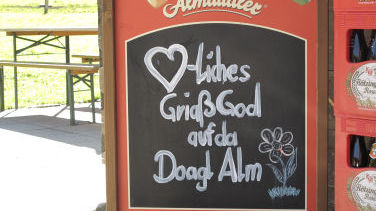 Almdudler
♡-liches
Griaß God
auf da
Doagl Alm